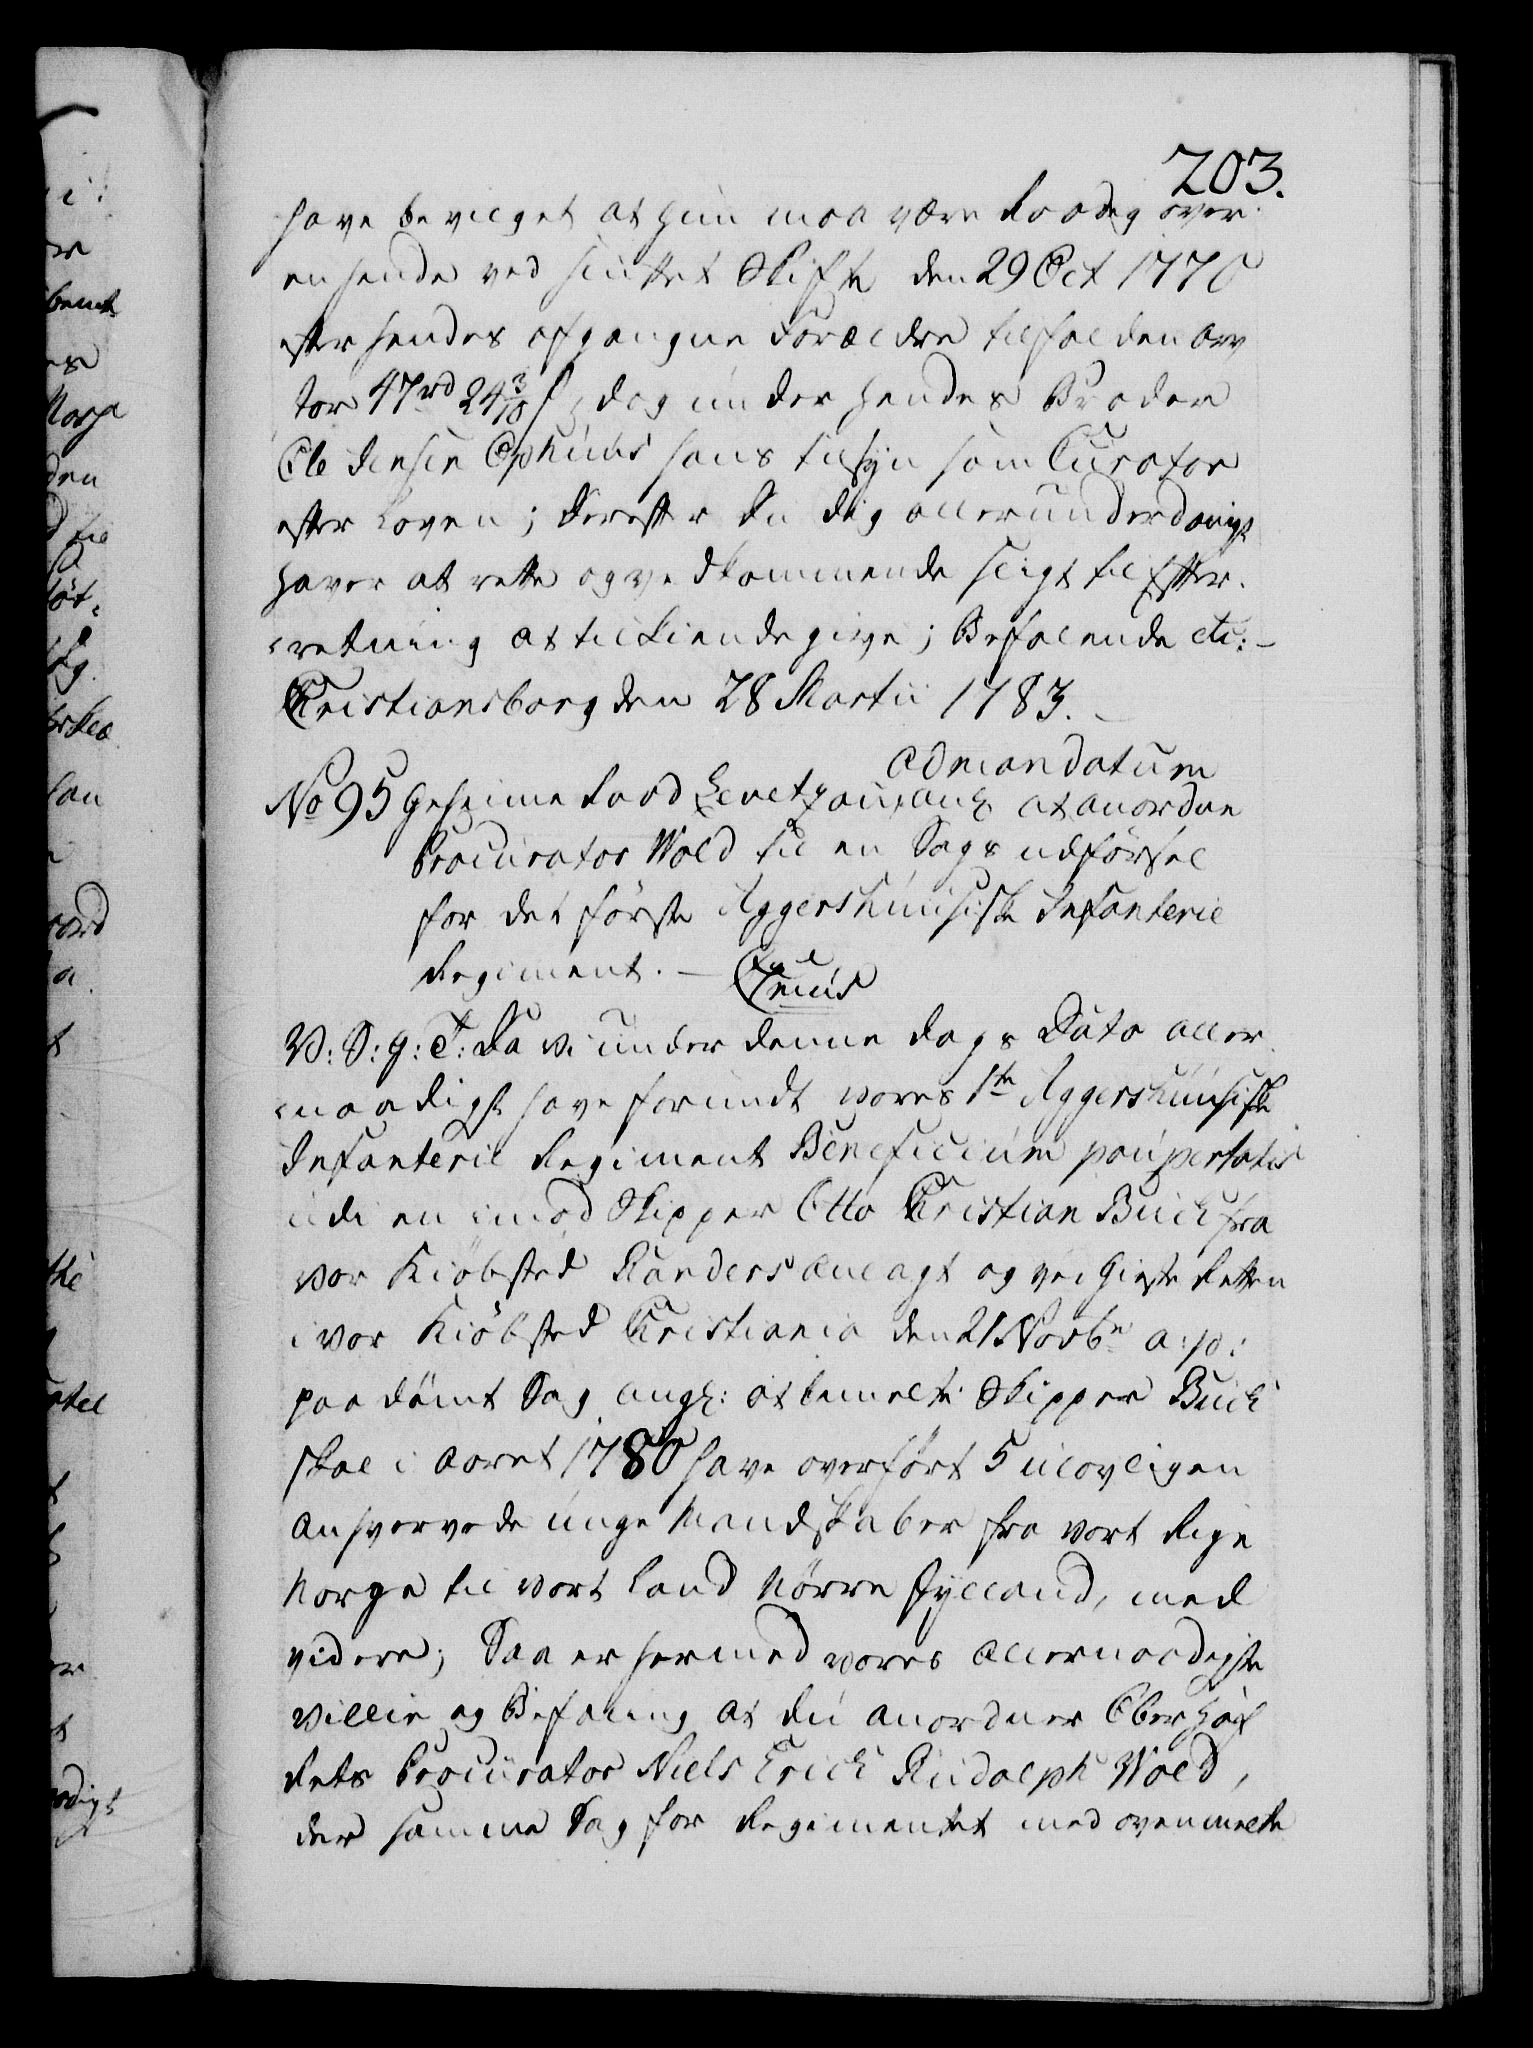 203.
have bevilget at hun maa være Raadig over
en hende ved sluttet Skifte den 29 Oct 1770
efter hendes afgangne Forældre tilfalden Arv
stor 47 rd 24 3/10 s, dog under hendes Broder
Ole Jensen Ophuus hans tilsyn som Curator
efter Loven; Derefter Du dig allerunderdanigst
haver at rette og vedkommende sligt til Efter-
-retning at tilkiendegive; Befalende etc: –
Christiansborg den 28 Martii 1783. –
ad mandatum
No 95 Geheime Raad Levetzau, anl at anordne
Procurator Wold til en Sags udførsel
for det første Aggershuusiske Infanterie
Regiment. –
V: S: G: T: Da vi under denne Dags Dato aller-
-naadigst have forundt vores 1te Aggershuusiske
Infanterie Regiment Beneficium paupertatis
udi en imod Skipper Otto Christian Buch fra
vor Kiøbsted Randers anlagt og ved Gieste Retten
i vor Kiøbsted Christiania den 21 Novbr a: p:
paadømt Sag angl: at bemelte Skipper Buch
skal i Aaret 1780 have overført 5 ulovligen
anhvervede unge Mandskaber fra vort Rige
Norge til vort Land Nørre Jylland, med
videre; Saa er hermed vores allernaadigste
Villie og Befaling at du anordner Oberhof
Rets Procurator Niels Erich Rudolph Wold,
der samme Sag for Regimentet med ovenmelte